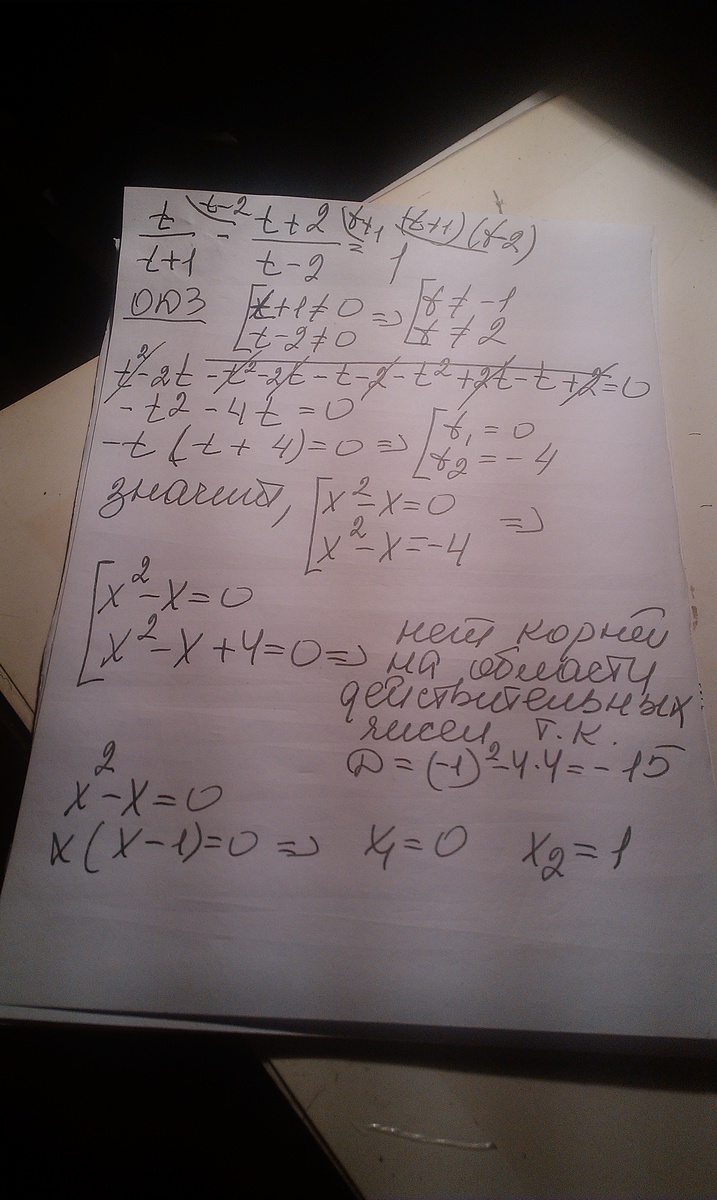 t/(t+1) - (t+2)/(t-2) = 1
t-2 t+1 (t+1)(t-2)
ОДЗ [t+1≠0 => [t≠-1
[t-2≠0 [t≠2
t²-2t-t²-2t-t-2-t²+2t-t+2=0
-t2-4t=0
-t(t+4)=0 => [t₁=0
[t₂=-4
значит, [x²-x=0 =>
[x²-x=-4
[x²-x=0
[x²-x+4=0 => нет корней
на области
действительных
чисел т.к.
D=(-1)²-4·4=-15
x²-x=0
x(x-1)=0 => x₁=0 x₂=1